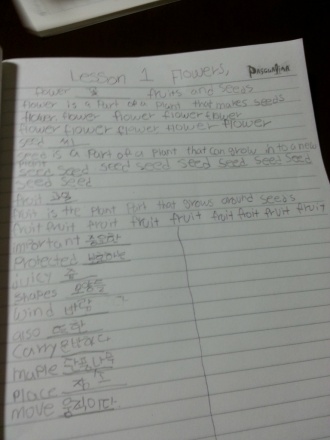 Lesson 1 Flowers,
flower 꽃 fruits and seeds
flower is a Part of a Plant that makes seeds
flower flower flower flower flower
flower flower flower flower flower flower
seed 씨
seed is a Part of a Plant that can grow in to a new
seed seed seed seed seed seed seed
seed seed
fruit 과일
fruit is the Plant Part that grows around seeds
fruit fruit fruit fruit fruit fruit fruit fruit fruit
important 중요한
Protected
juicy 즙
shapes 모양들
wind 바람
also 또한
Carry 운반하다
maple 단풍나무
Place 장소
move 움직이다